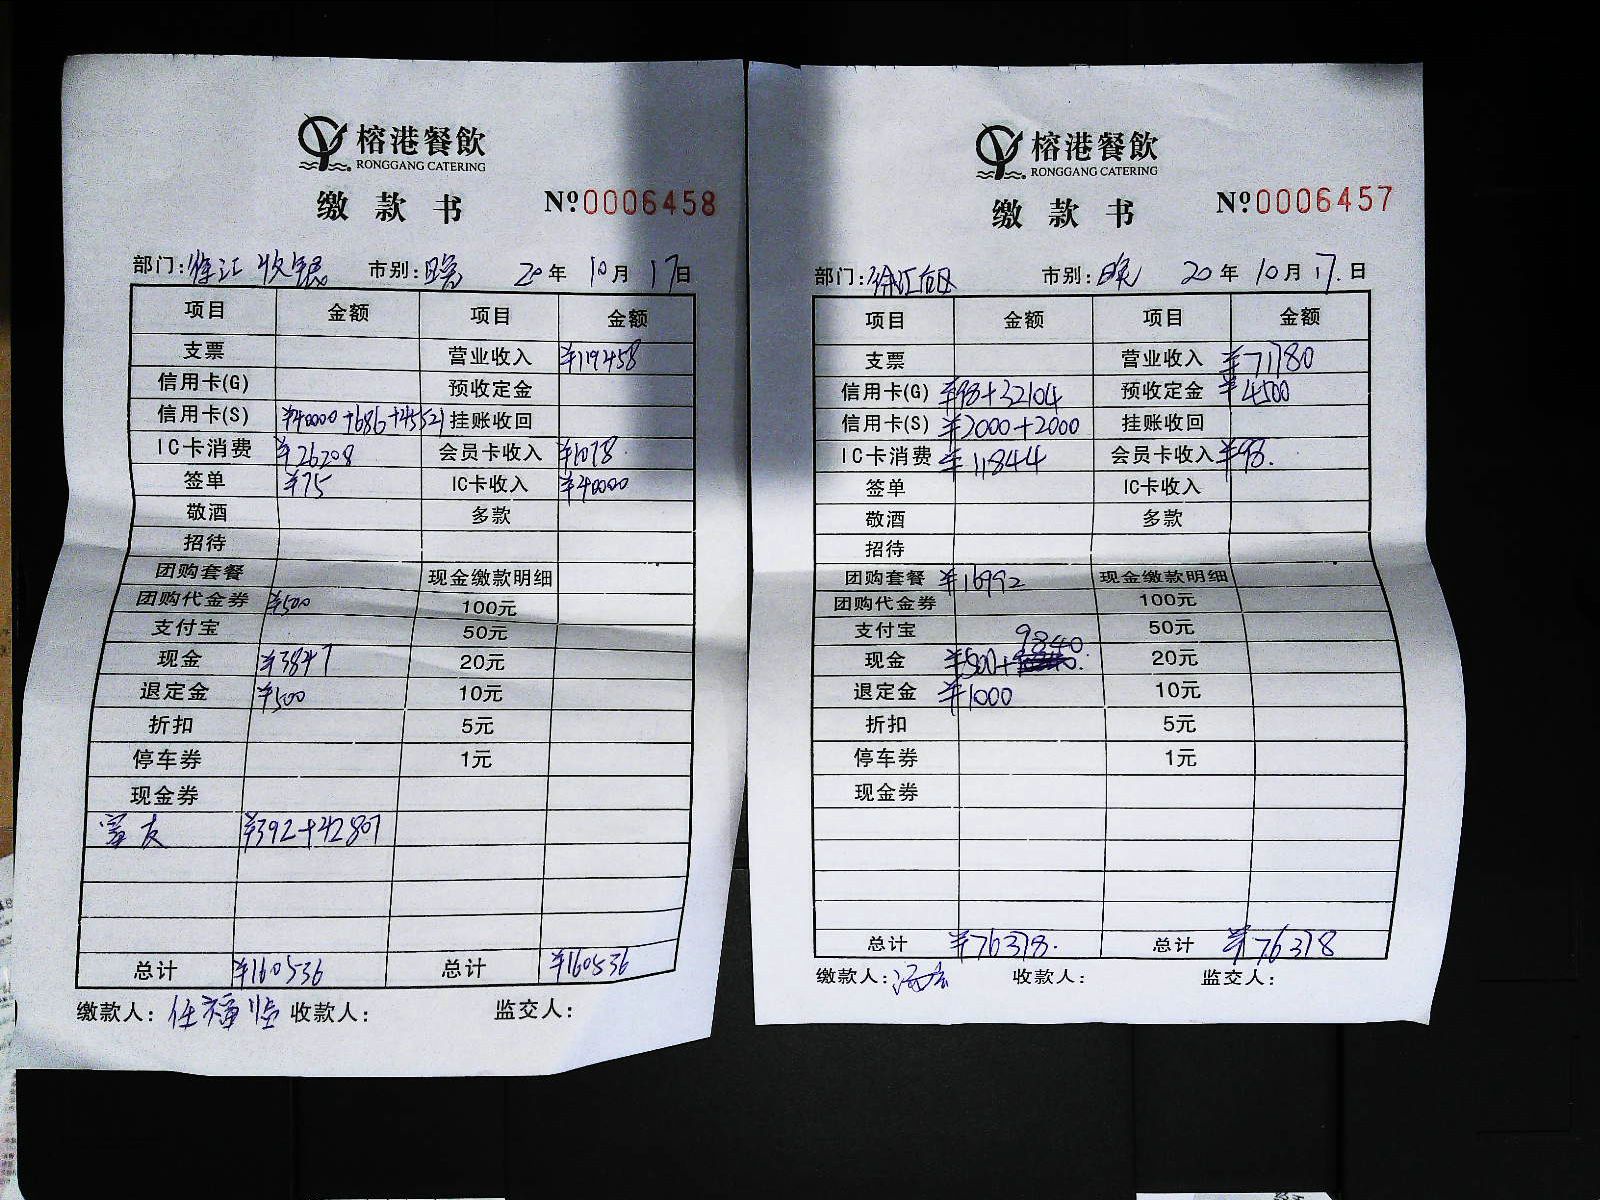 榕港餐飲
RONGGANG CATERING
缴款书 Nº0006458
部门:徐汇收银 市别:晚 20年10月17日
项目 金额 项目 金额
支票 营业收入 ¥119458
信用卡(G) 预收定金
信用卡(S) ¥40000+686+45521 挂账收回
IC卡消费 ¥26208 会员卡收入 ¥1078
签单 ¥75 IC卡收入 ¥40000
敬酒 多款
招待
团购套餐 现金缴款明细
团购代金券 ¥500 100元
支付宝 50元
现金 ¥3847 20元
退定金 ¥500 10元
折扣 5元
停车券 1元
现金券
¥392+42807
总计 ¥160536 总计 ¥160536
缴款人: 收款人: 监交人:
榕港餐飲
RONGGANG CATERING
缴款书 Nº0006457
部门:徐汇 市别:晚 20年10月17.日
项目 金额 项目 金额
支票 营业收入 ¥71780
信用卡(G) ¥98+32104 预收定金 ¥4500
信用卡(S) ¥2000+2000 挂账收回
IC卡消费 ¥11844 会员卡收入 ¥98.
签单 IC卡收入
敬酒 多款
招待
团购套餐 ¥16992 现金缴款明细
团购代金券 100元
支付宝 50元
现金 ¥500+9840. 20元
退定金 ¥1000 10元
折扣 5元
停车券 1元
现金券
总计 ¥76378. 总计 ¥76378
缴款人: 收款人: 监交人: